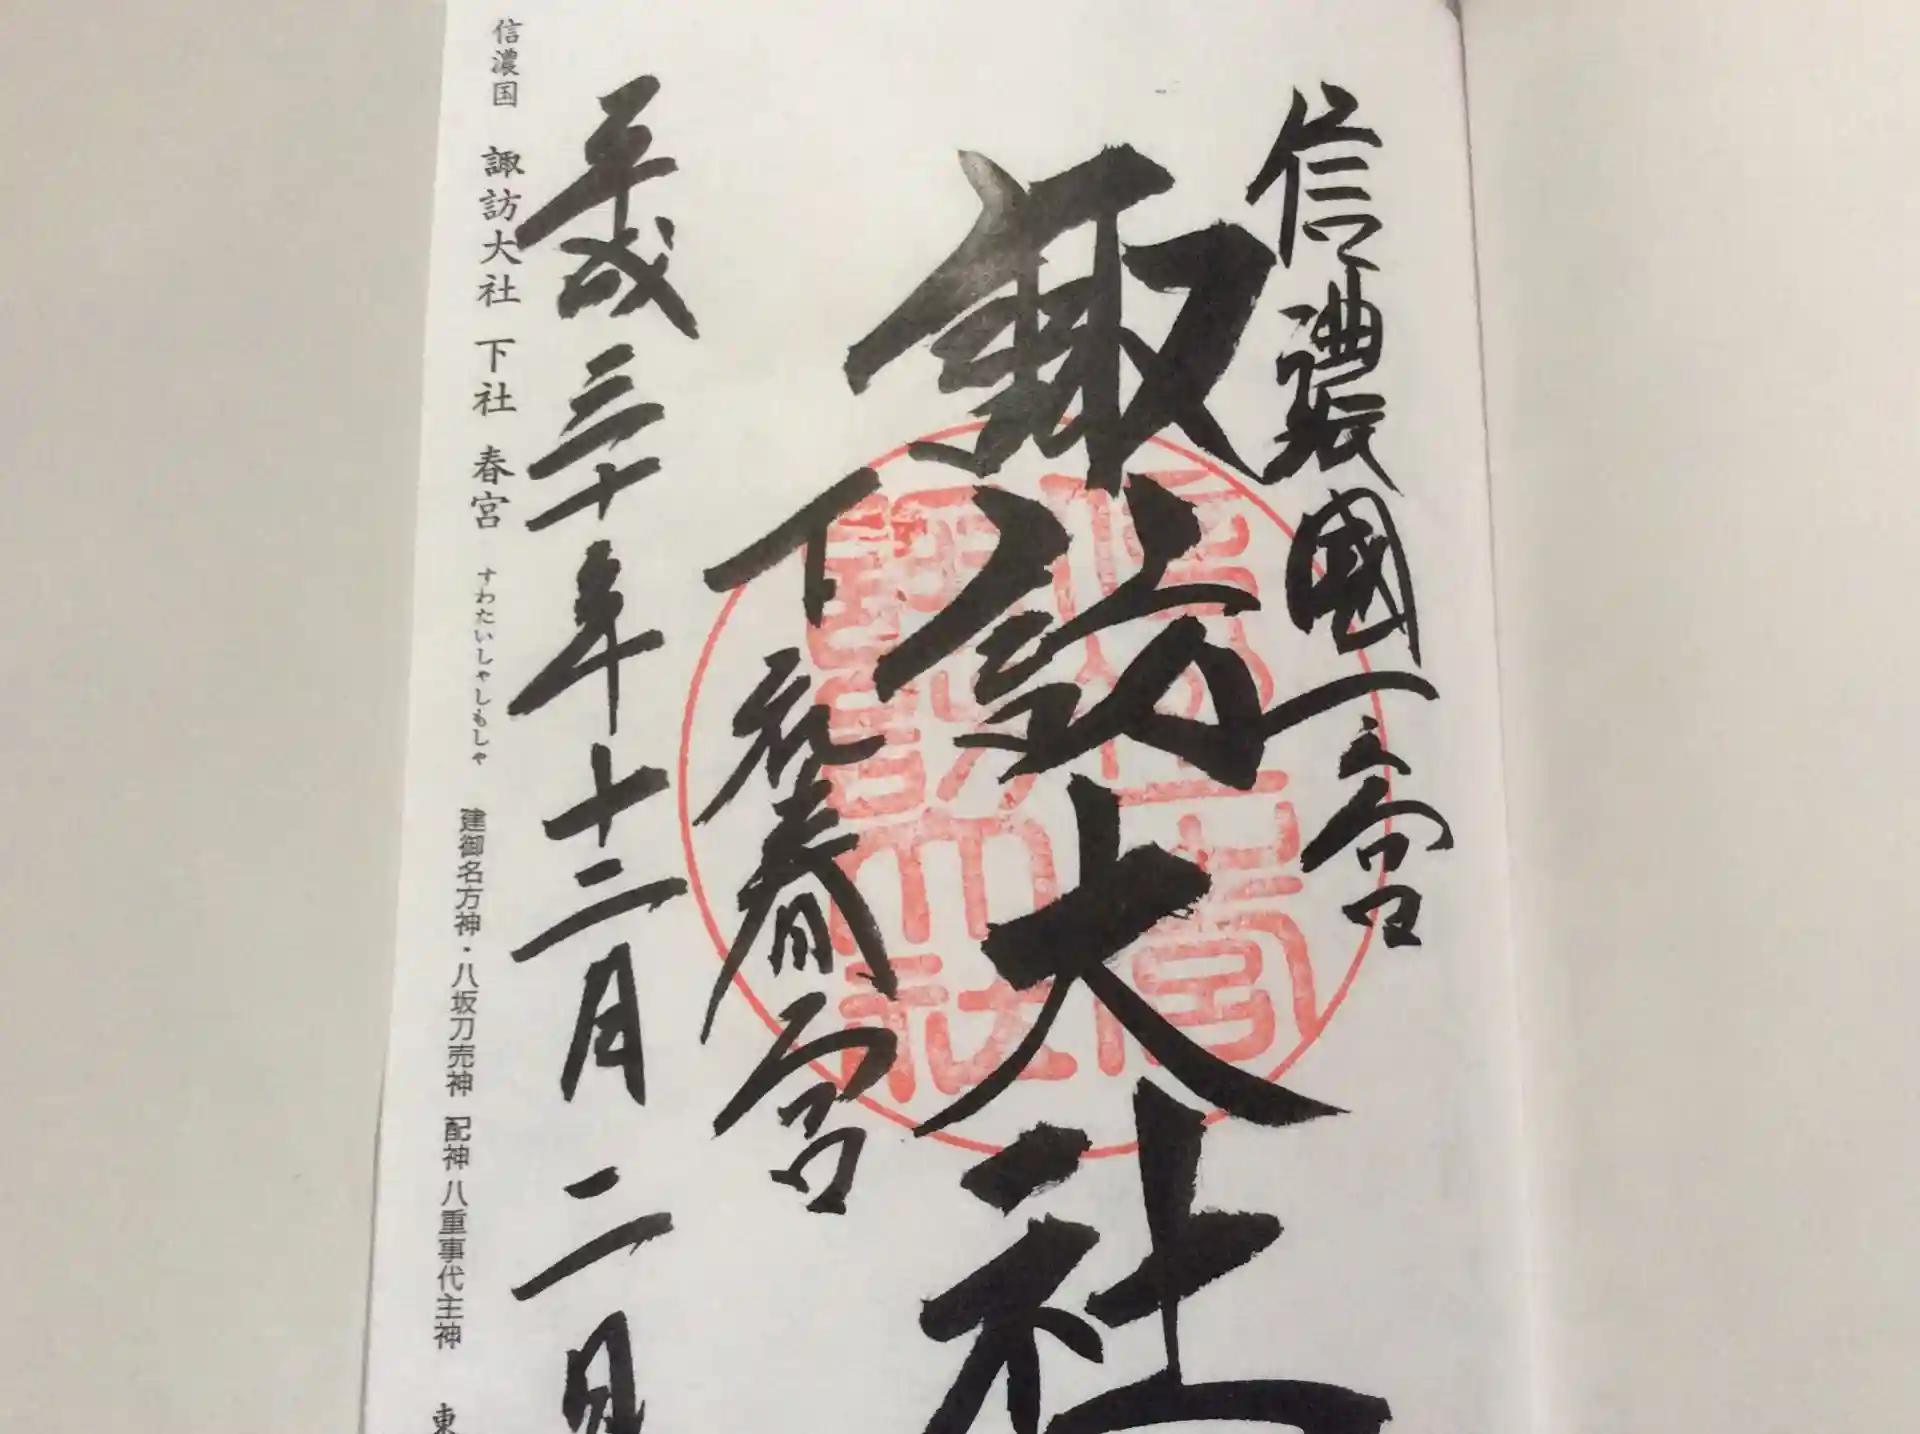 信濃國一之宮
諏訪大社
下社春宮
平成三十年十二月二日
信濃国 諏訪大社 下社 春宮 すわたいしゃしもしゃ 建御名方神・八坂刀売神 配神 八重事代主神 東